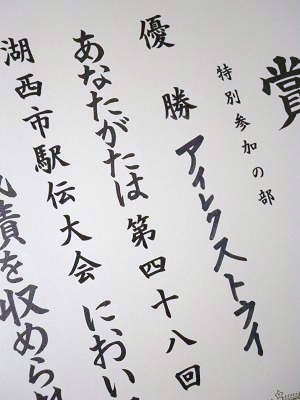 賞
特別参加の部
優勝 アイレクストライ
あなたがたは第四十八回
湖西市駅伝大会におい
成績を収められ